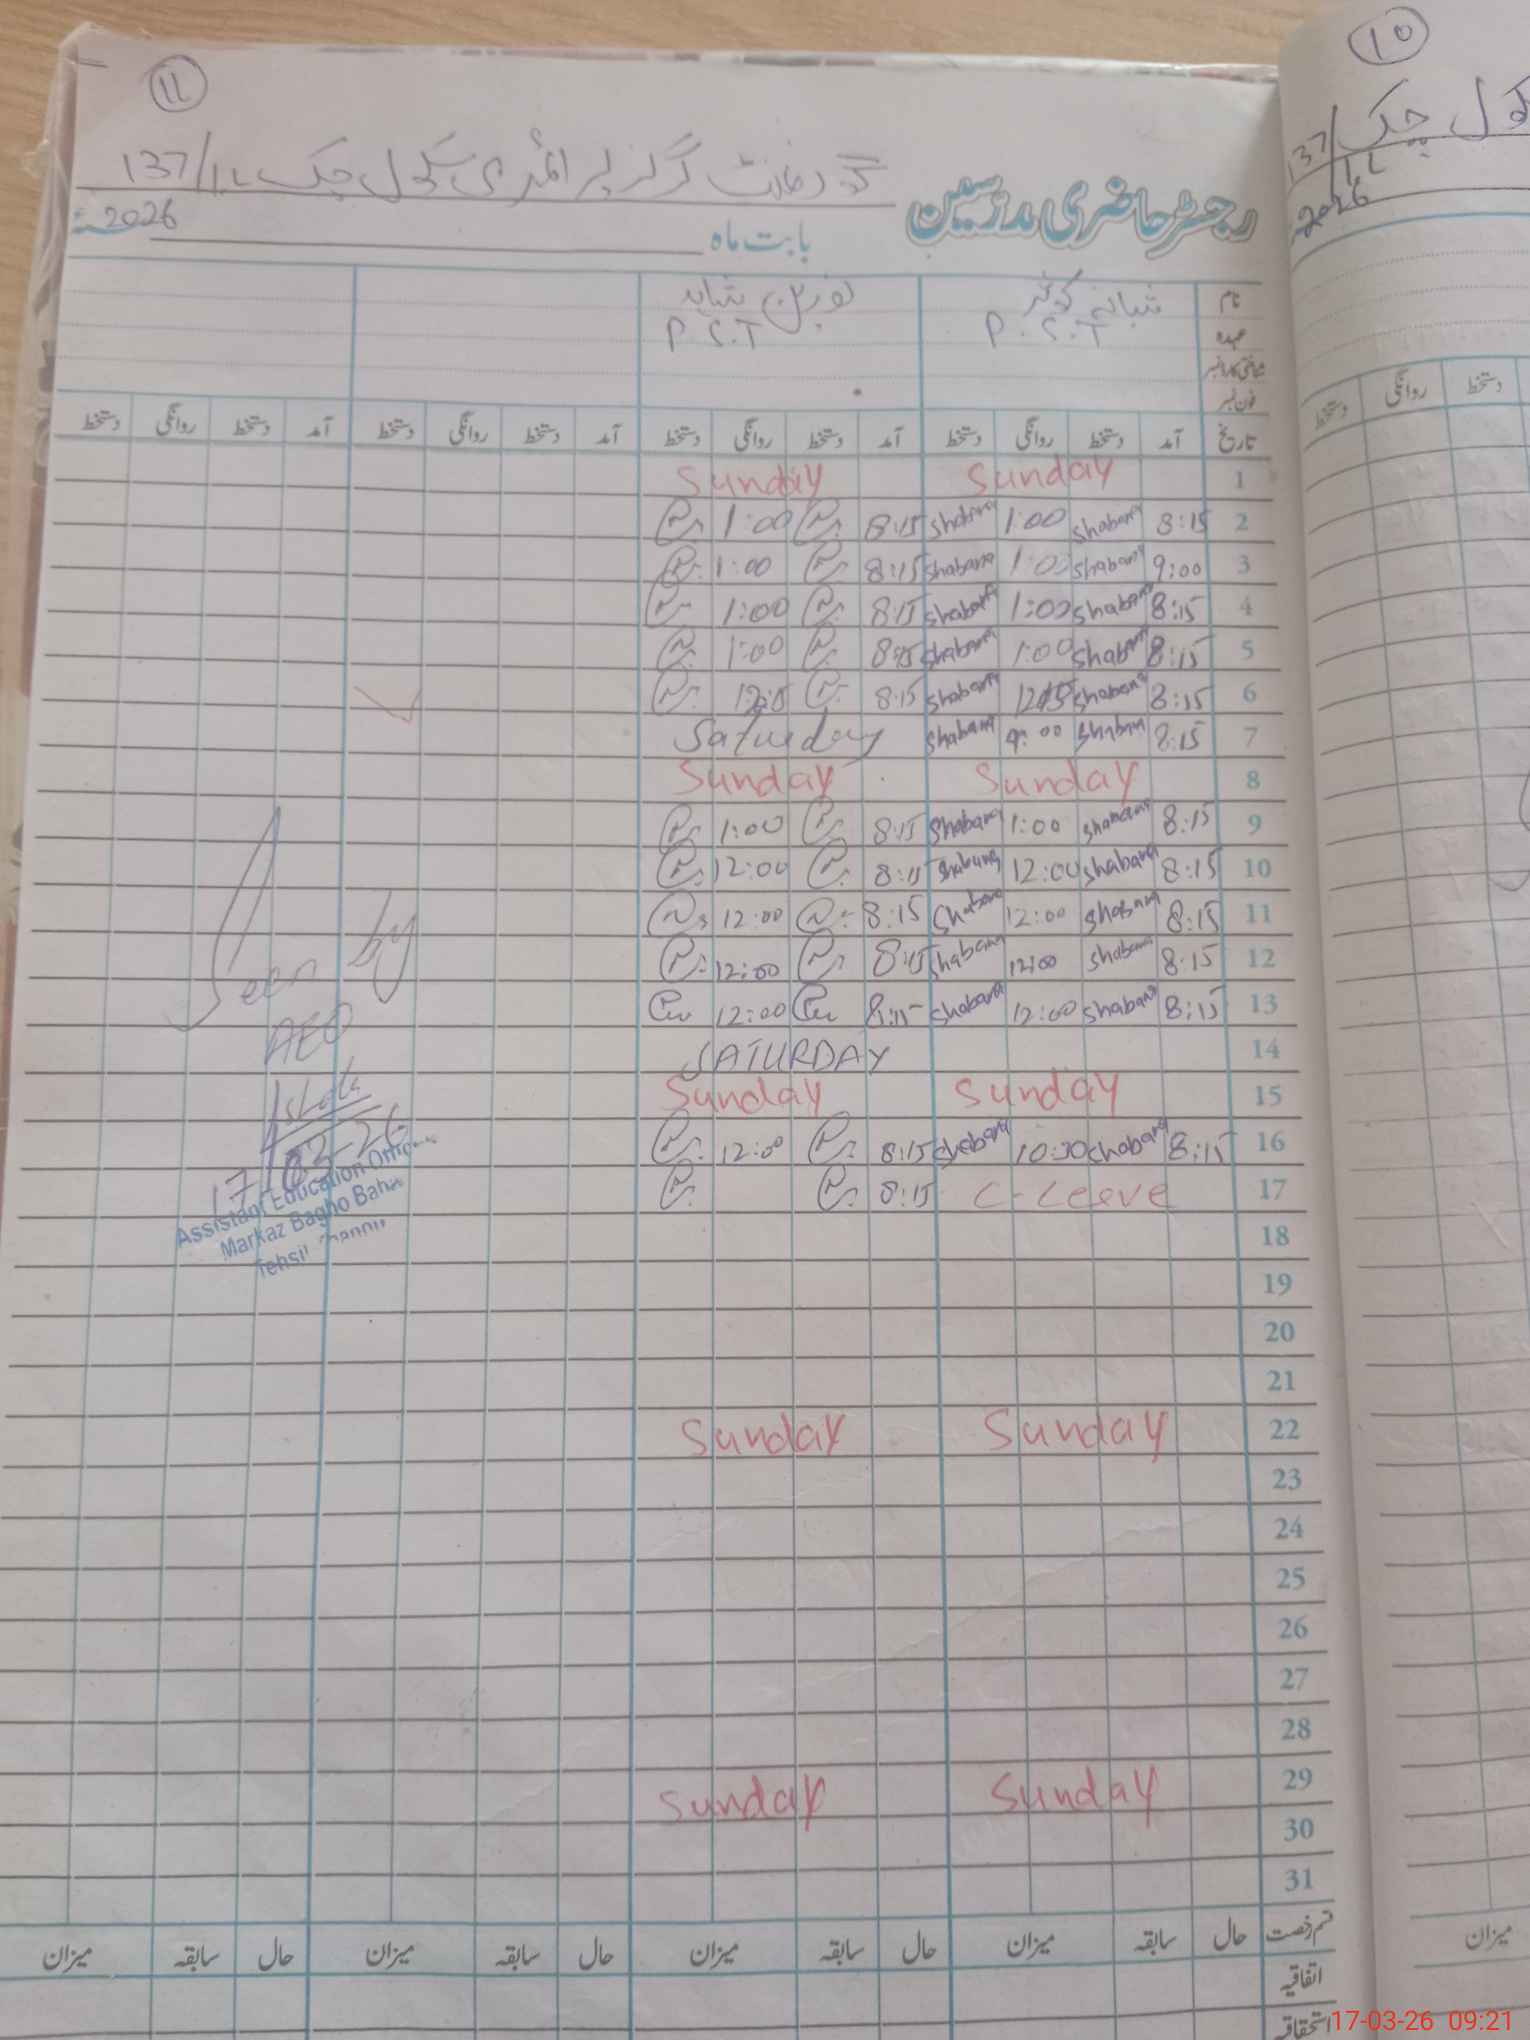 11
گورنمنٹ گرلز پرائمری سکول چک 137/1L
رجسٹر حاضری مدرسین
بابت ماہ 2026ء
نام شبانہ کوثر نورین شاہد
عہدہ P.S.T P.S.T
شناختی کارڈ نمبر
فون نمبر
تاریخ آمد دستخط روانگی دستخط آمد دستخط روانگی دستخط آمد دستخط روانگی دستخط آمد دستخط روانگی دستخط
1 Sunday Sunday
2 8:15 Shabana 1:00 Shabana 8:15 1:00
3 9:00 Shabana 1:00 Shabana 8:15 1:00
4 8:15 Shabana 1:00 Shabana 8:15 1:00
5 8:15 Shabana 1:00 Shabana 8:15 1:00
6 8:15 Shabana 12:15 Shabana 8:15 12:15
7 8:15 Shabana Shabana Saturday
8 Sunday Sunday
9 8:15 Shabana 1:00 Shabana 8:15 1:00
10 8:15 Shabana 12:00 Shabana 8:15 12:00
11 8:15 Shabana 12:00 Shabana 8:15 12:00
12 8:15 Shabana 12:00 Shabana 8:15 12:00
13 8:15 Shabana 12:00 Shabana 8:15 12:00
14 SATURDAY
15 Sunday Sunday
16 8:15 Shabana 10:30 Shabana 8:15 12:00
17 C-Leave 8:15
18
19
20
21
22 Sunday Sunday
23
24
25
26
27
28
29 Sunday Sunday
30
31
قسم رخصت حال سابقہ میزان حال سابقہ میزان حال سابقہ میزان حال سابقہ میزان
اتفاقیہ
استحقاقیہ
Seen by
AEO
17/03-26
Assistant Education Officer
Markaz Bagho Bahar
Tehsil
10
چک 137/1L
2026
دستخط روانگی دستخط
میزان
17-03-26 09:21